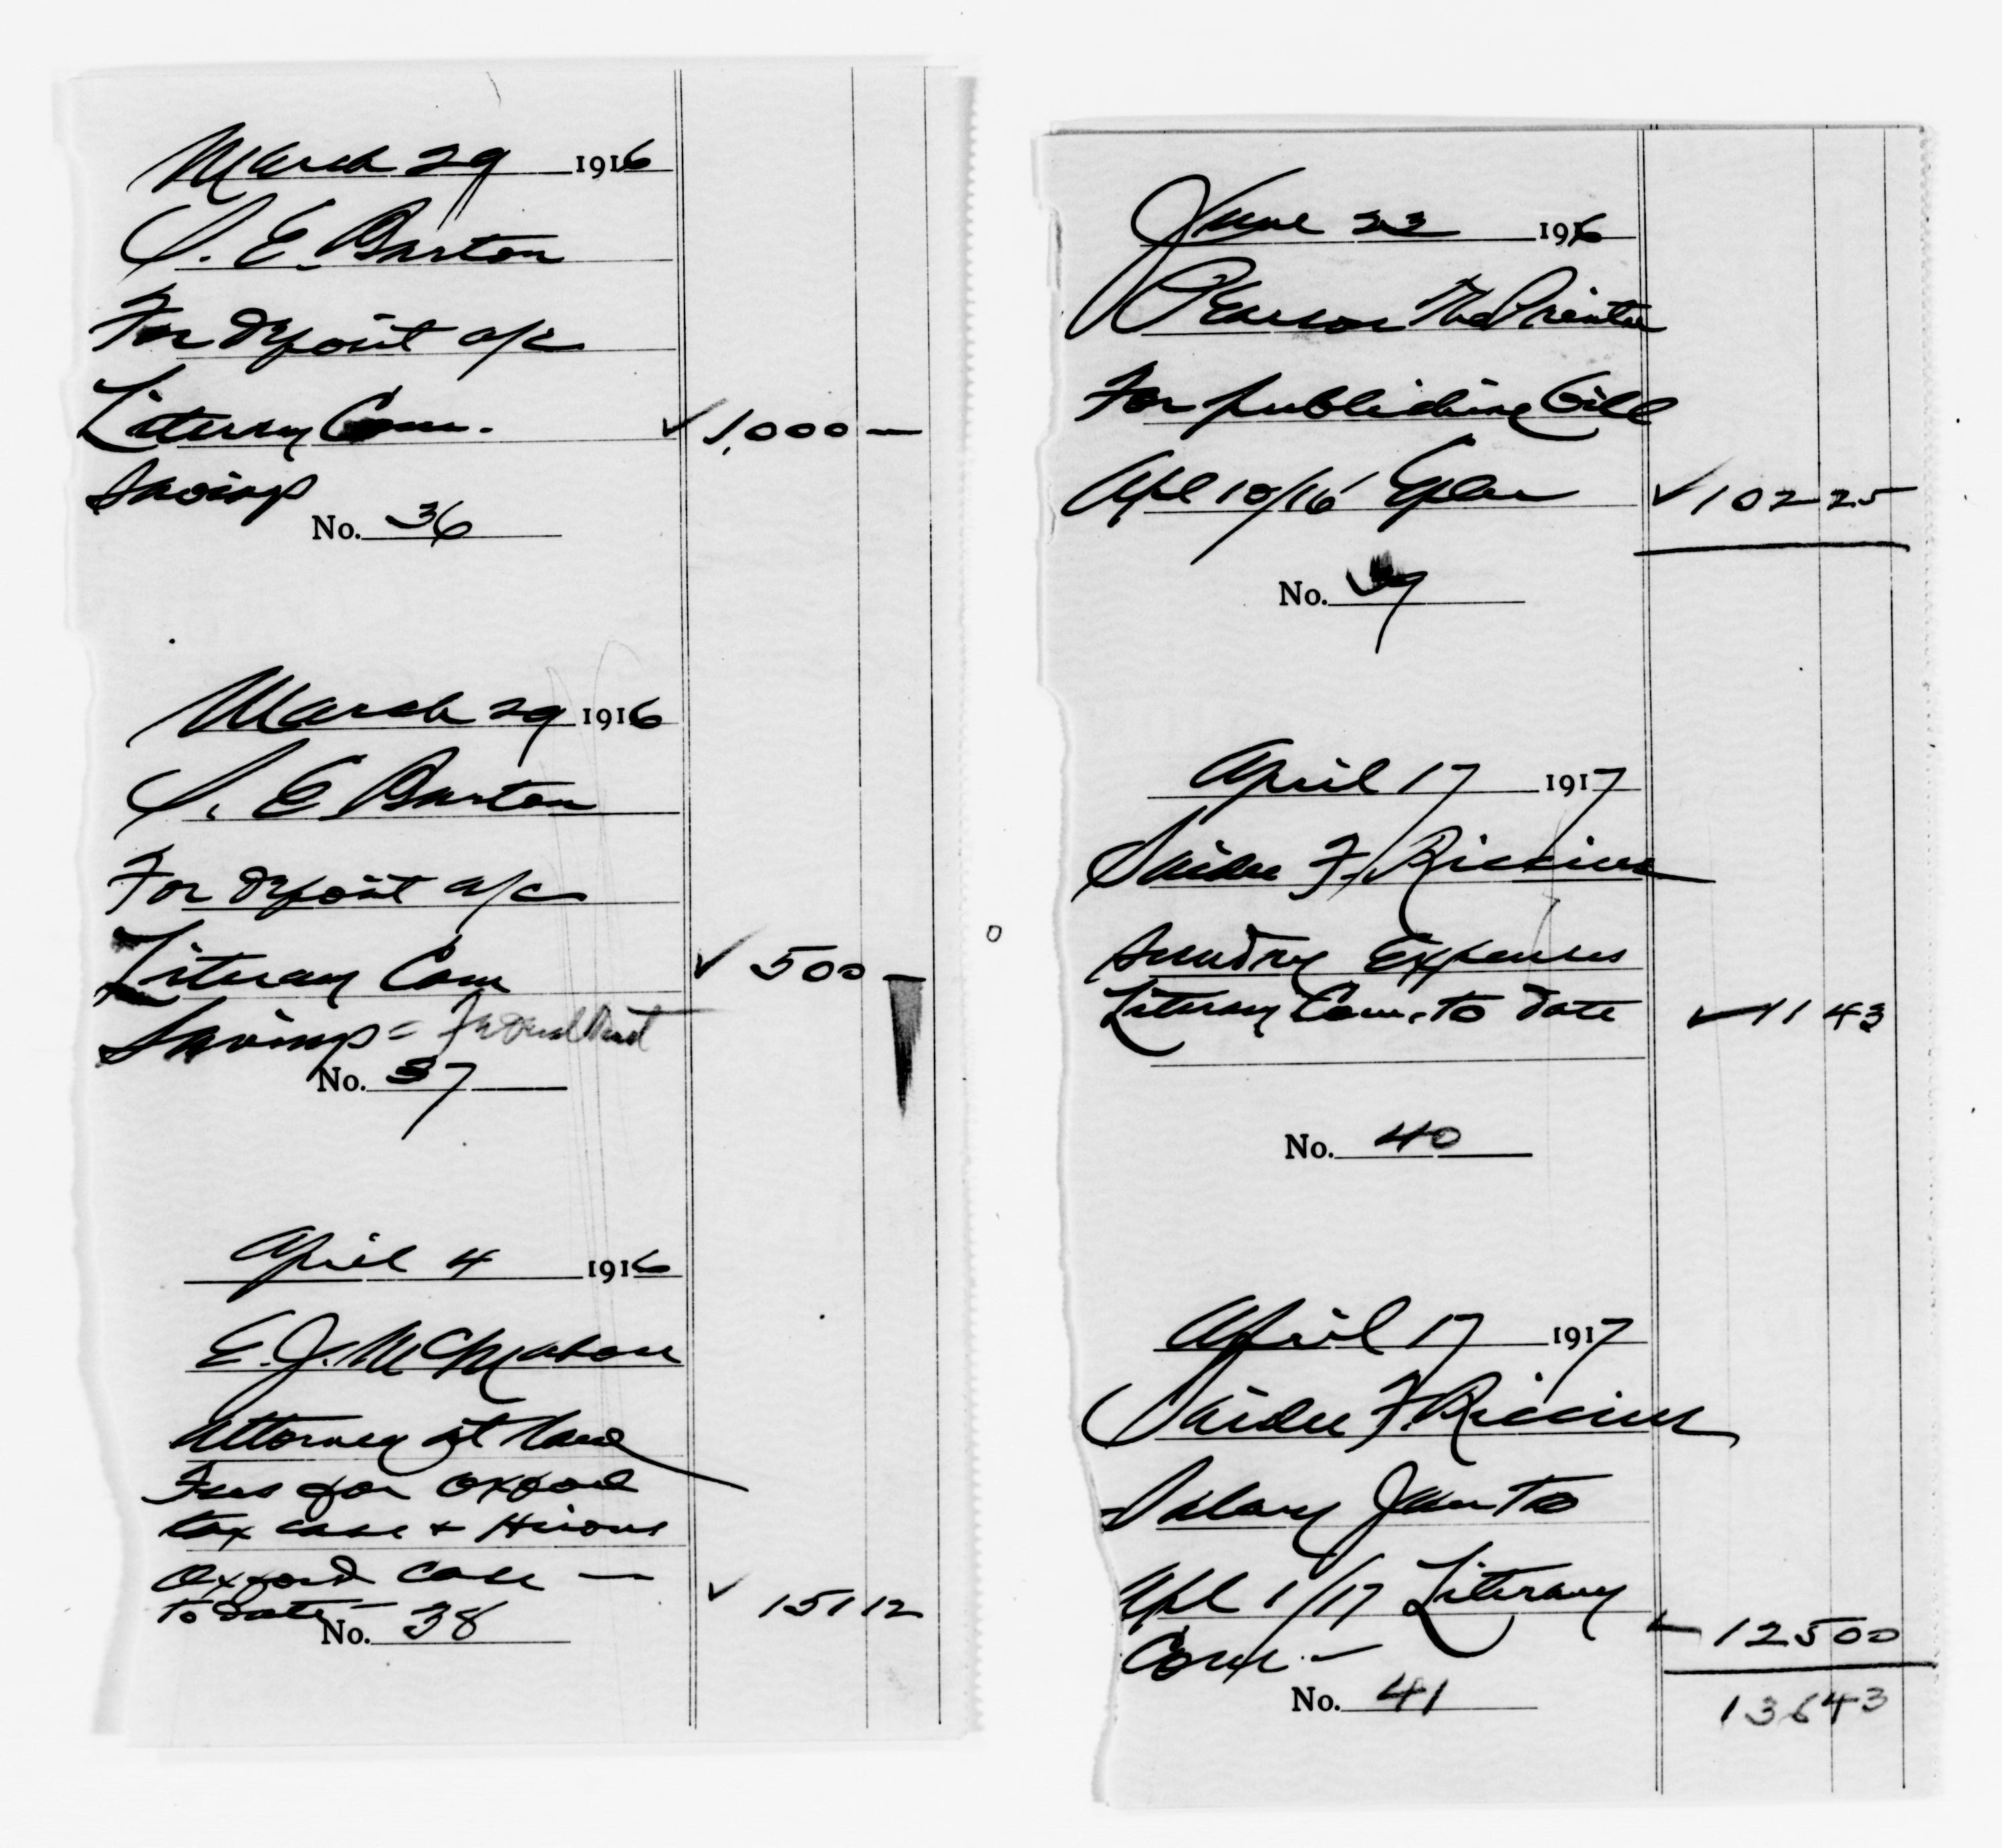 March 29 1916
S. E. Barton
For deposit a/c
Literary Com. ✓ 1,000 —
Savings
No. 36
March 29 1916
S. E. Barton
For deposit a/c
Literary Com ✓ 500 —
Savings =
No. 37
April 4 1916
E. J. McMahon
Attorney at Law
Fees for Oxford
tax case +
Oxford case —
to date — ✓ 151 12
No. 38
June 23 1916
Pearson The Printer
For publishing bill
Apl 10/16 ✓ 102 25
No. 39
April 17 1917
F.
Sundry Expenses
Literary Com. to date ✓ 11 43
No. 40
April 17 1917
F.
Salary Jan to
Apl 1/17 Literary
Com. — ✓ 125 00
No. 41
136 43